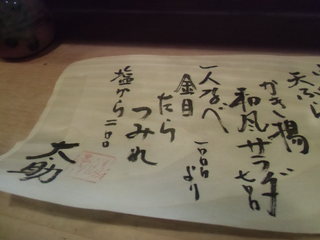 天ぷら
かき揚
和風サラダ 七〇〇
一人なべ 一〇〇〇より
金目
たら
つみれ
塩から 二〇〇
太助